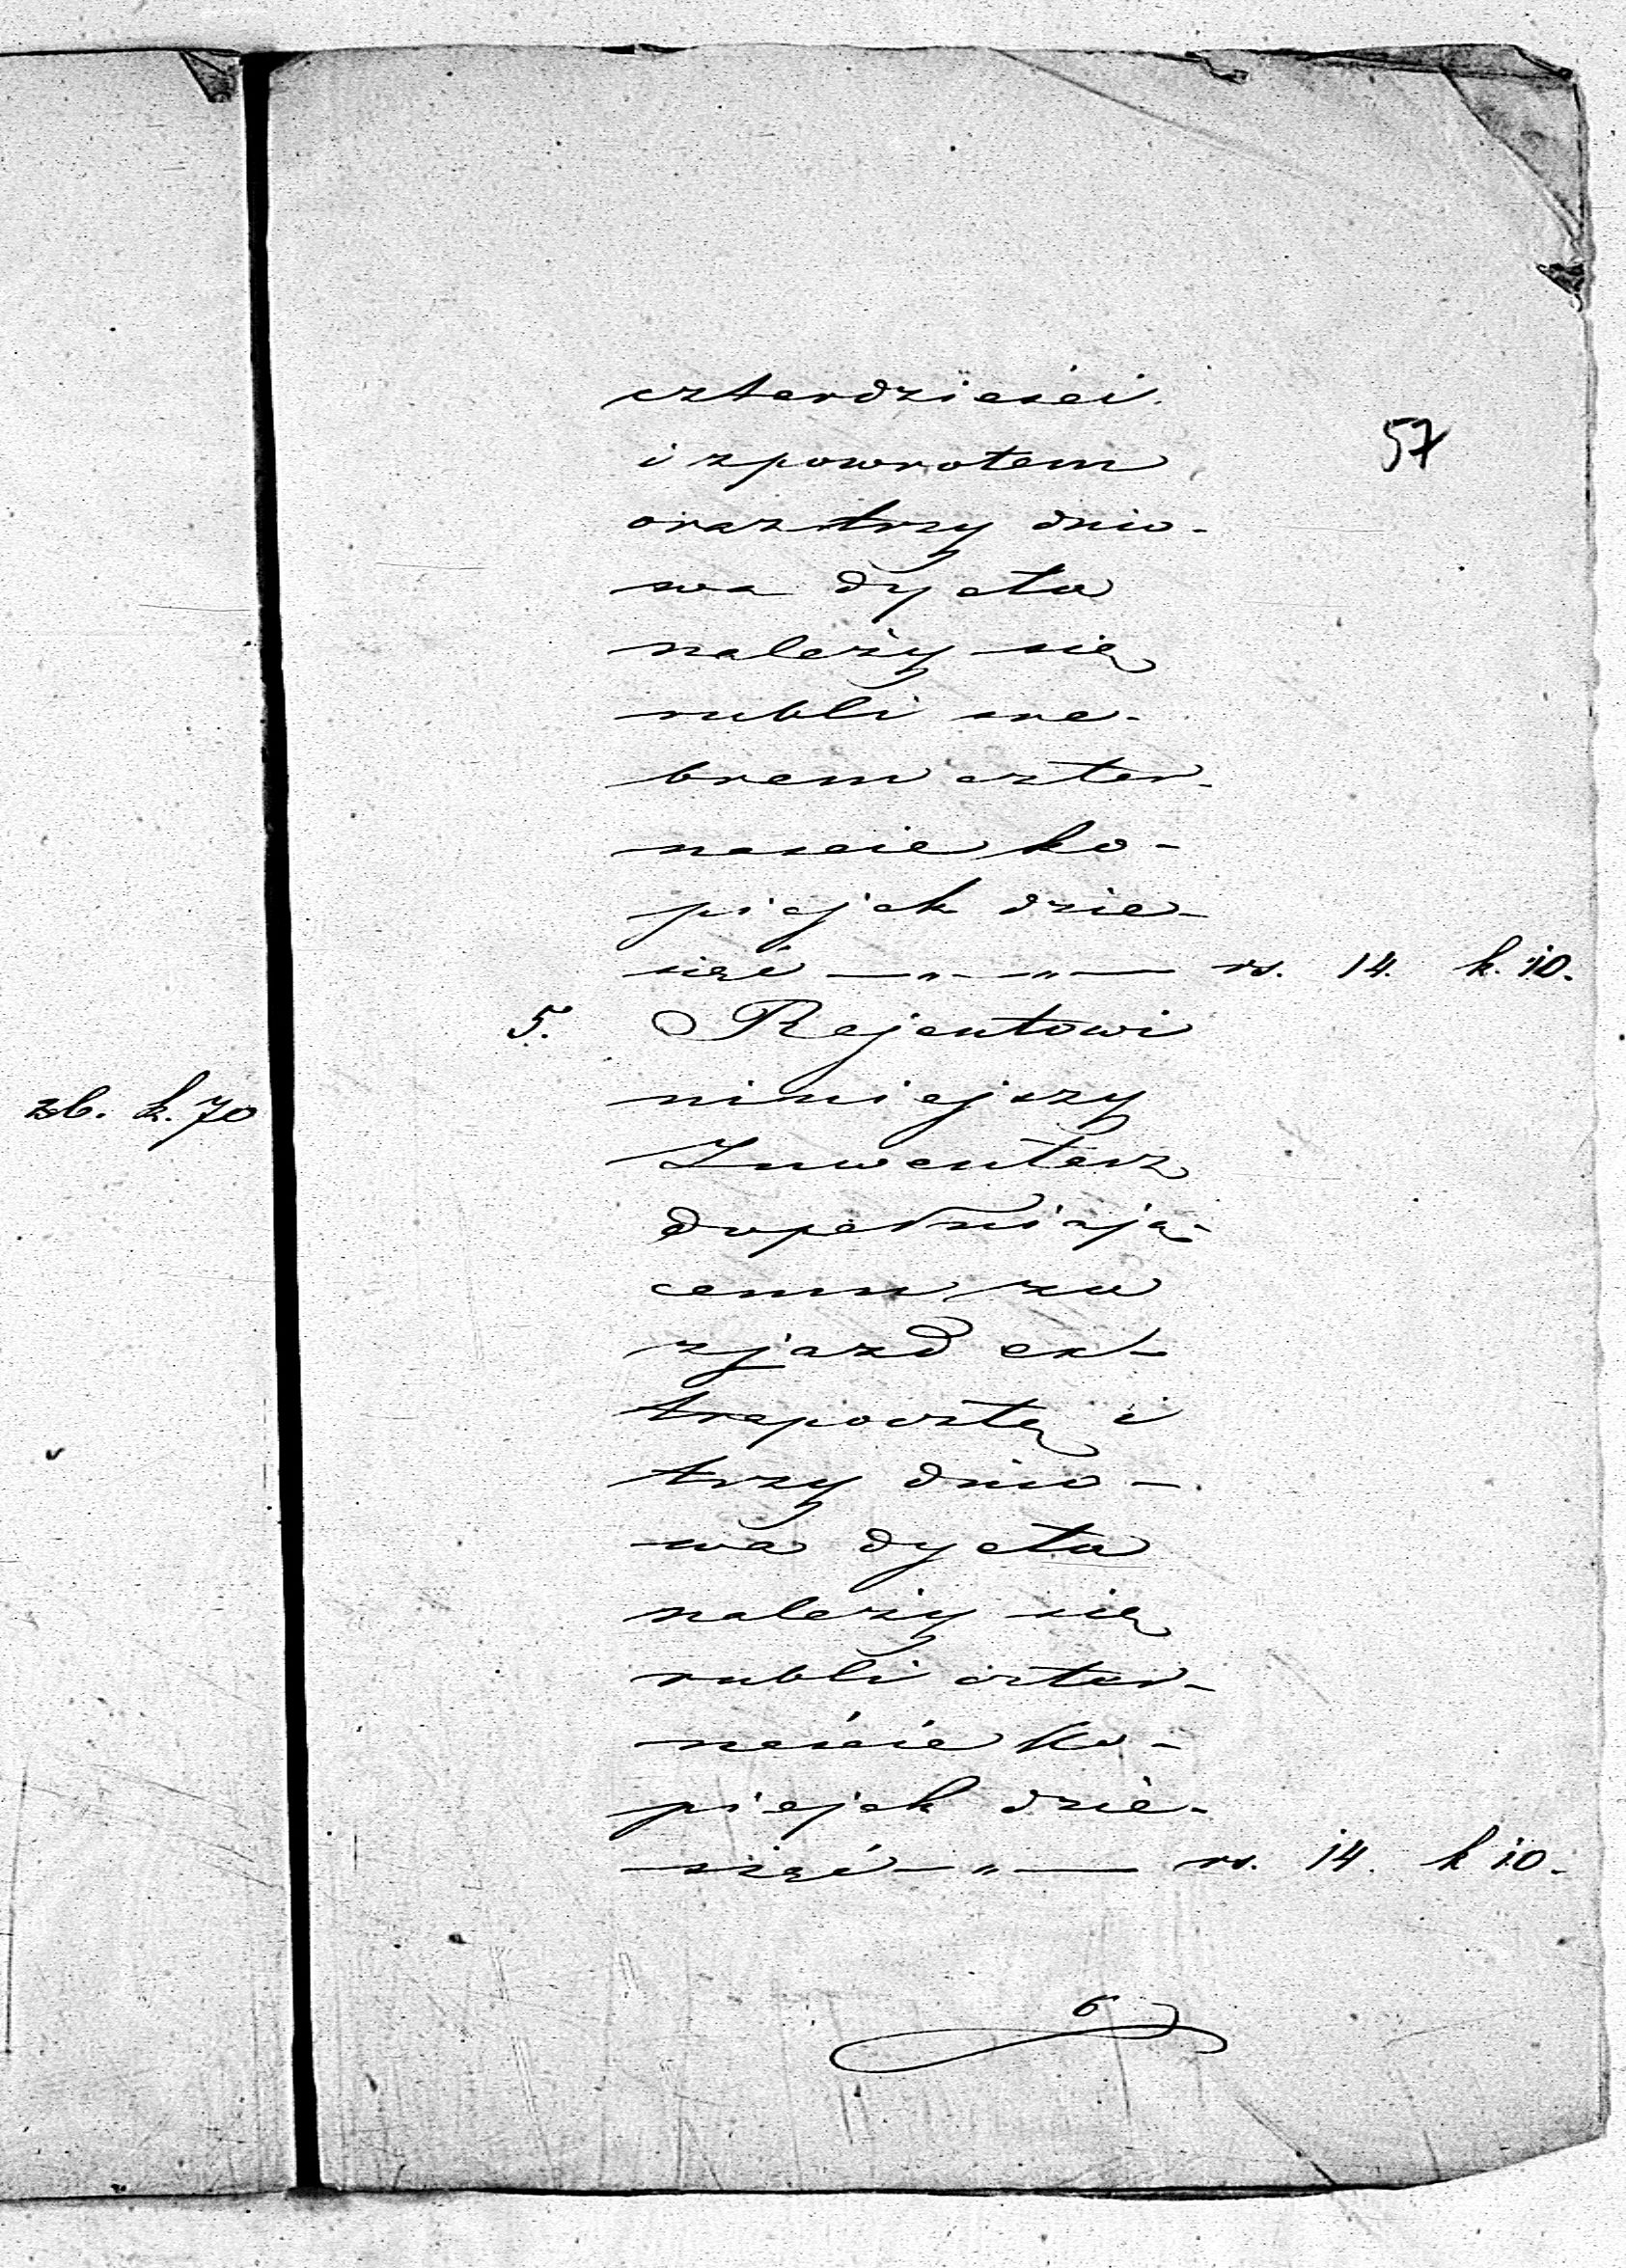 czterdzieści
57
i z powrotem
oraz trzy dnio-
wa dyeta
należy się
rubli sre-
brem czter-
naście ko-
piejek dzie-
sięć — „ — „ — rs. 14. k. 10.
5. Rejentowi
niniejszy
zb. k. 70
Inwentarz
dopełniają-
cemu za
zjazd ex-
trapocztą i
trzy dnio-
wa dyeta
należy się
rubli czter-
naście ko-
piejek dzie-
sięć — „ — rs. 14. k 10.
6